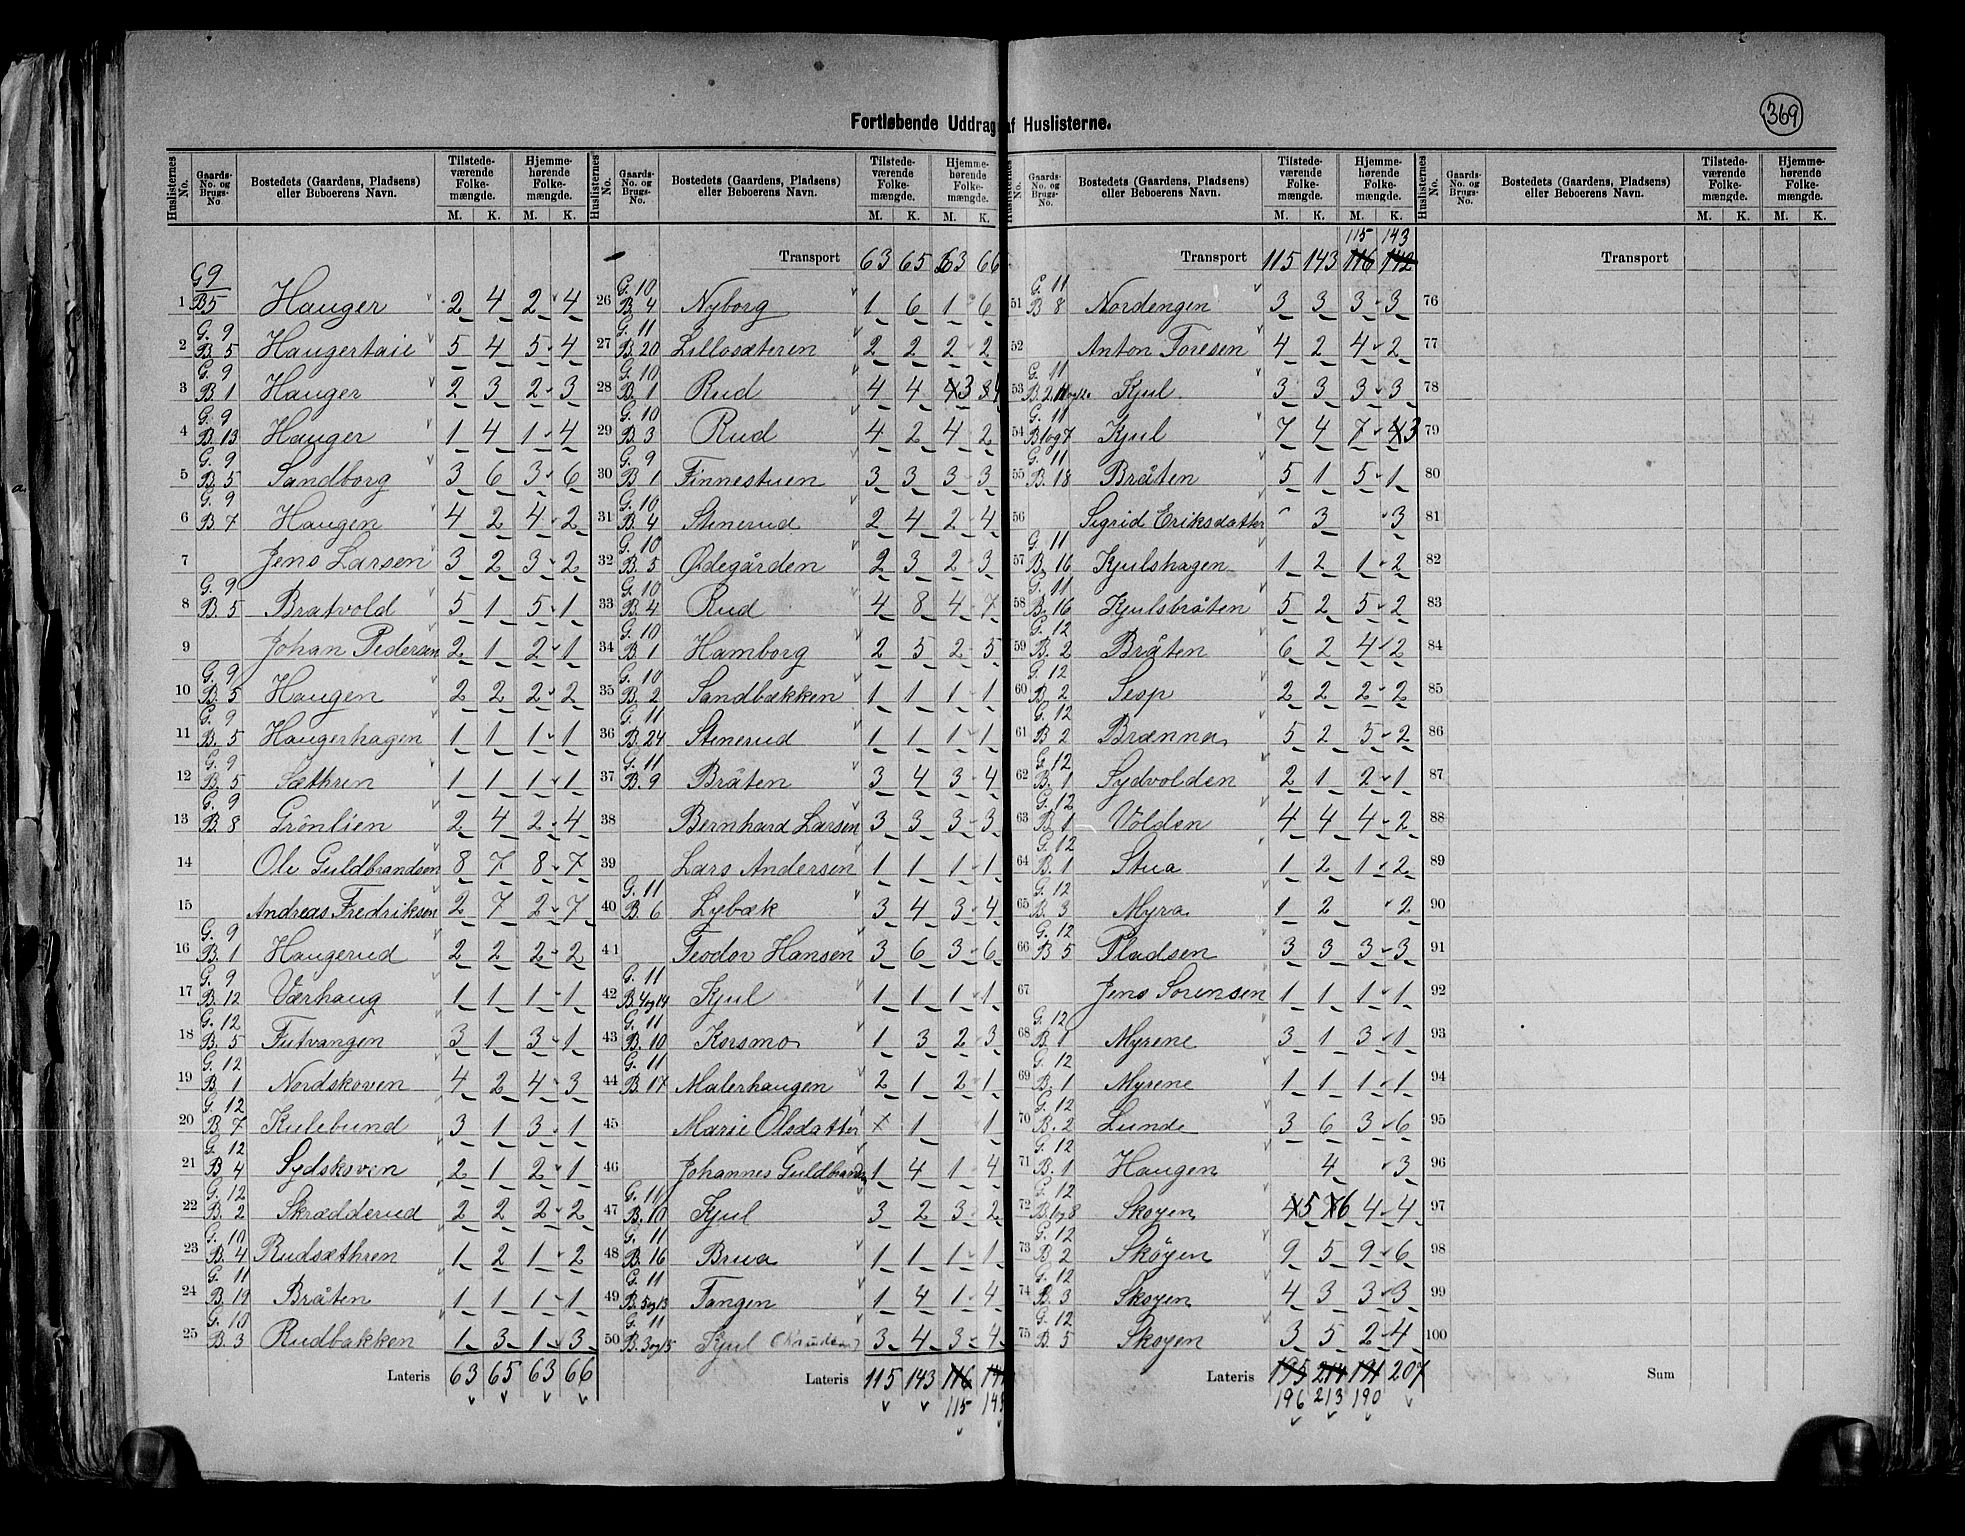 369
Fortløbende Uddrag af Huslisterne.
Huslisternes No. | Gaards-No. og Brugs-No. | Bostedets (Gaardens, Pladsens) eller Beboerens Navn. | Tilstedeværende Folkemængde. M. K. | Hjemmehørende Folkemængde. M. K.
1 G9 B5 Hauger 2 4 2 4
2 G. 9 B. 5 Haugertaie 5 4 5 4
3 G. 9 B. 1 Hauger 2 3 2 3
4 G. 9 B. 13 Hauger 1 4 1 4
5 G. 9 B. 5 Sandborg 3 6 3 6
6 G. 9 B 7 Haugen 4 2 4 2
7 Jens Larsen 3 2 3 2
8 G. 9 B. 5 Bratvold 5 1 5 1
9 Johan Pedersen 2 1 2 1
10 G. 9 B. 5 Haugen 2 2 2 2
11 G. 9 B. 5 Haugerhagen 1 1 1 1
12 G. 9 B. 5 Sæthren 1 1 1 1
13 G. 9 B. 8 Grönlien 2 4 2 4
14 Ole Guldbrandsen 8 7 8 7
15 Andreas Fredriksen 2 7 2 7
16 G. 9 B. 1 Haugerud 2 2 2 2
17 G. 9 B. 12 Værhaug 1 1 1 1
18 G. 12 B. 5 Futvangen 3 1 3 1
19 G. 12 B 1 Nordskoven 4 2 4 3
20 G. 12 B. 7 Kulebund 3 1 3 1
21 G. 12 B 4 Sydskoven 2 1 2 1
22 G. 12 B. 2 Skrædderud 2 2 2 2
23 G. 10 B. 4 Rudsæthren 1 2 1 2
24 G. 11 B. 12 Bråten 1 1 1 1
25 G. 10 B. 3 Rudbakken 1 3 1 3
Lateris 63 65 63 66
Huslisternes No. | Gaards-No. og Brugs-No. | Bostedets (Gaardens, Pladsens) eller Beboerens Navn. | Tilstedeværende Folkemængde. M. K. | Hjemmehørende Folkemængde. M. K.
Transport 63 65 63 66
26 G. 10 B. 4 Nyborg 1 6 1 6
27 G. 11 B. 20 Lillosæteren 2 2 2 2
28 G. 10 B. 1 Rud 4 4 4 3 3 4
29 G. 10 B. 3 Rud 4 2 4 2
30 G. 9 B 1 Finnestuen 3 3 3 3
31 G. 10 B. 4 Stenerud 2 4 2 4
32 G. 10 B. 5 Ødegården 2 3 2 3
33 G. 10 B. 4 Rud 4 8 4 7
34 G. 10 B 1 Hamborg 2 5 2 5
35 G. 10 B. 2 Sandbækken 1 1 1 1
36 G. 11 B. 24 Stenerud 1 1 1 1
37 G. 11 B. 9 Bråten 3 4 3 4
38 Bernhard Larsen 3 3 3 3
39 Lars Andersen 1 1 1 1
40 G. 11 B. 6 Lybæk 3 4 3 4
41 Teodor Hansen 3 6 3 6
42 G. 11 B. 4og14 Kjul 1 1 1 1
43 G. 11 B. 10 Korsmo 1 3 2 3
44 G. 11 B. 17 Malerhaugen 2 1 2 1
45 Marie Olsdatter x 1 1
46 Johannes Guldbrandsen 1 4 1 4
47 G. 11 B. 10 Kjul 3 2 3 2
48 G. 11 B. 16 Brua 1 1 1 1
49 G. 11 B. 5og13 Tangen 1 4 1 4
50 G. 11 B. 3og15 Kjul 3 4 3 4
Lateris 115 143 116
115 143
Huslisternes No. | Gaards-No. og Brugs-No. | Bostedets (Gaardens, Pladsens) eller Beboerens Navn. | Tilstedeværende Folkemængde. M. K. | Hjemmehørende Folkemængde. M. K.
115 143
Transport 115 143 116 142
51 G. 11 B 8 Nordengen 3 3 3 3
52 Anton Toresen 4 2 4 2
53 G. 11 Kjul 3 3 3 3
54 G. 11 B1og7 Kjul 7 4 7 4 3
55 G. 11 B. 18 Bråten 5 1 5 1
56 Sigrid Eriksdatter " 3 3
57 G. 11 B. 16 Kjulshagen 1 2 1 2
58 G. 11 B. 16 Kjulsbråten 5 2 5 2
59 G. 12 B. 2 Bråten 6 2 4 2
60 G. 12 B 2 Sesp 2 2 2 2
61 G. 12 B 2 Brænna 5 2 5 2
62 G. 12 B. 1 Sydvolden 2 1 2 1
63 G. 12 B 1 Volden 4 4 4 2
64 G. 12 B. 1 Stua 1 2 1 2
65 G. 12 B. 3 Myra 1 2 2
66 G. 12 B 5 Pladsen 3 3 3 3
67 Jens Sorensen 1 1 1 1
68 G. 12 B 1 Myrene 3 1 3 1
69 G. 12 B. 1 Myrene 1 1 1 1
70 G. 12 B. 2 Lunde 3 6 3 6
71 G. 12 B. 1 Haugen 4 3
72 G. 12 B. 1og8 Skoyen 4 5 7 6 4 4
73 G. 12 B 2 Sköyen 9 5 9 6
74 G. 12 B. 3 Skoyen 4 3 3 3
75 G. 12 B. 5 Skoyen 3 5 2 4
Lateris 195 214 191 207
196 213 190
Huslisternes No. | Gaards-No. og Brugs-No. | Bostedets (Gaardens, Pladsens) eller Beboerens Navn. | Tilstedeværende Folkemængde. M. K. | Hjemmehørende Folkemængde. M. K.
Transport
76
77
78
79
80
81
82
83
84
85
86
87
88
89
90
91
92
93
94
95
96
97
98
99
100
Sum